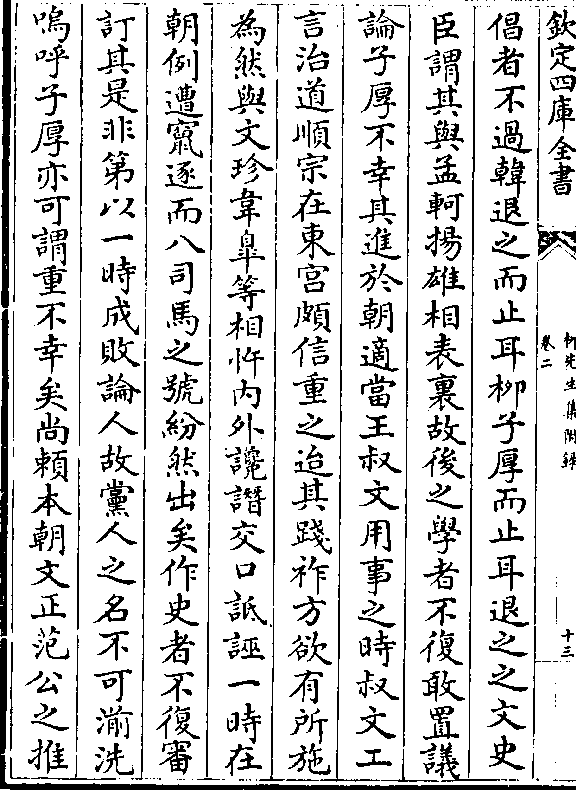 欽定四庫全書
柳先生集附錄
卷二
十三
倡者不過韓退之而止耳柳子厚而止耳退之之文史
臣謂其與孟軻揚雄相表裏故後之學者不復敢置議
論子厚不幸其進於朝適當王叔文用事之時叔文工
言治道順宗在東宮頗信重之迨其踐祚方欲有所施
為然與文珍韋臯等相忤内外讒譖交口詆誣一時在
朝例遭竄逐而八司馬之號紛然出矣作史者不復審
訂其是非第以一時成敗論人故黨人之名不可湔洗
嗚呼子厚亦可謂重不幸矣尚賴本朝文正范公之推